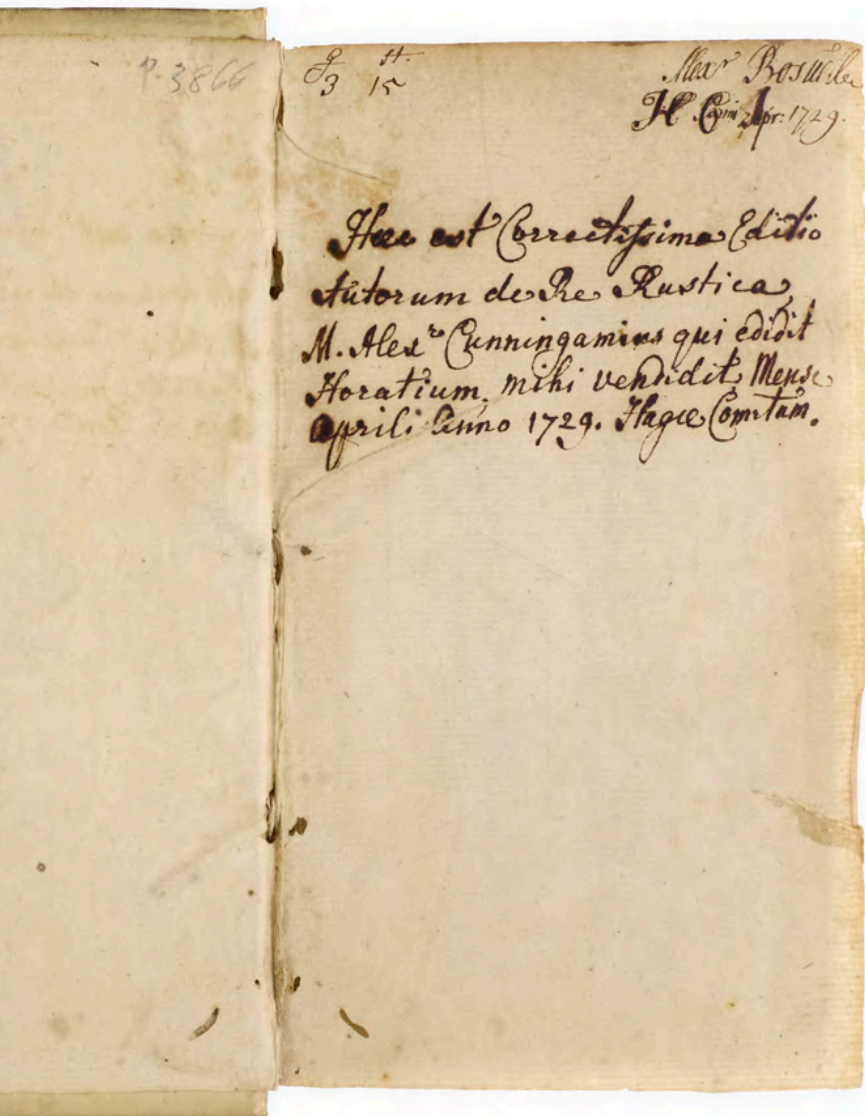 P. 3866
g H.
3 15
Alexr Boswel
H. Com: Apr: 1729.
Haec est Correctissima Editio
Autorum de Re Rustica,
M. Alexro Cunningamius qui edidit
Horatium, mihi vendidit, Mense
Aprili Anno 1729. Hagae Comitum.